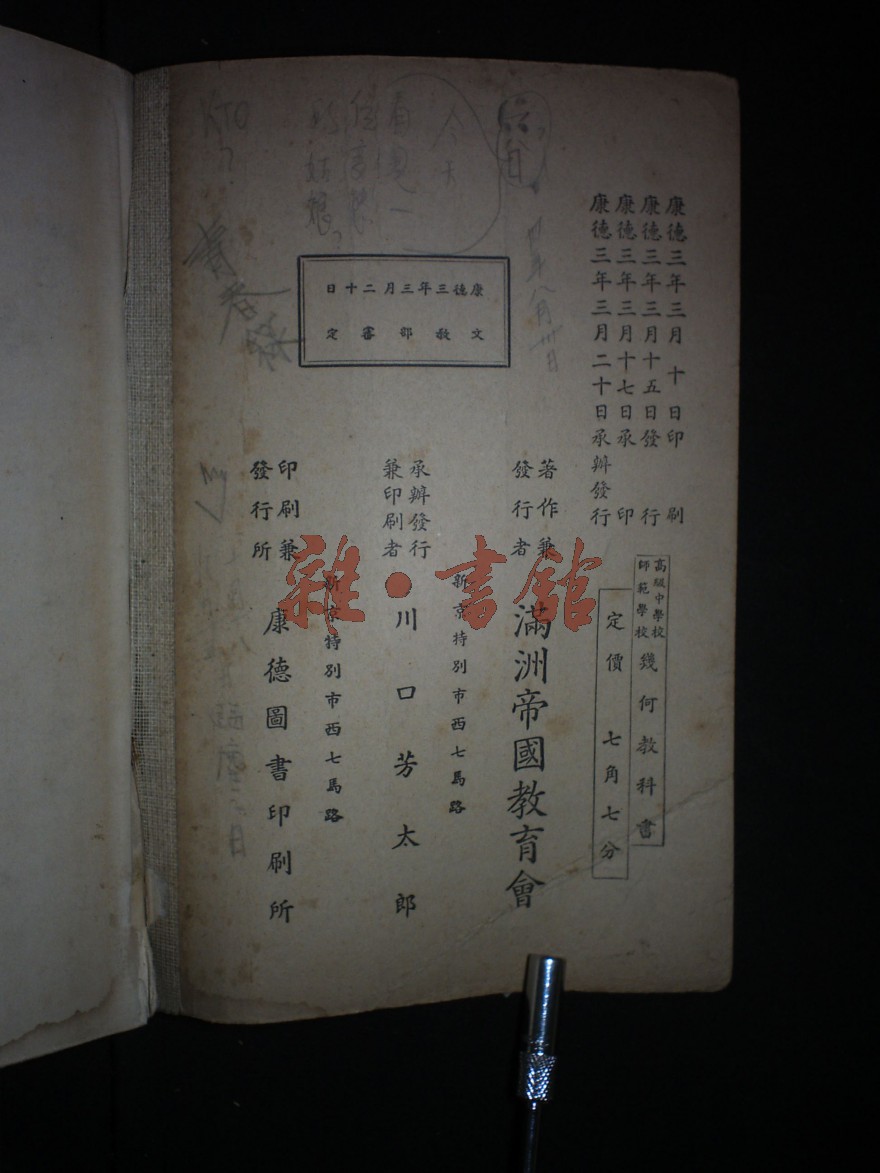 康德三年三月十日印刷
康德三年三月十五日發行
康德三年三月十七日承印
康德三年三月二十日承辦發行
高級中學校
師範學校
幾何教科書
定價 七角七分
著作兼
發行者
滿洲帝國教育會
新京特別市西七馬路
承辦發行
兼印刷者
川口芳太郎
新京特別市西七馬路
印刷兼
發行所
康德圖書印刷所
康德三年三月二十日
文教部審定
雜·書館
年八月卅日
今天
姑娘